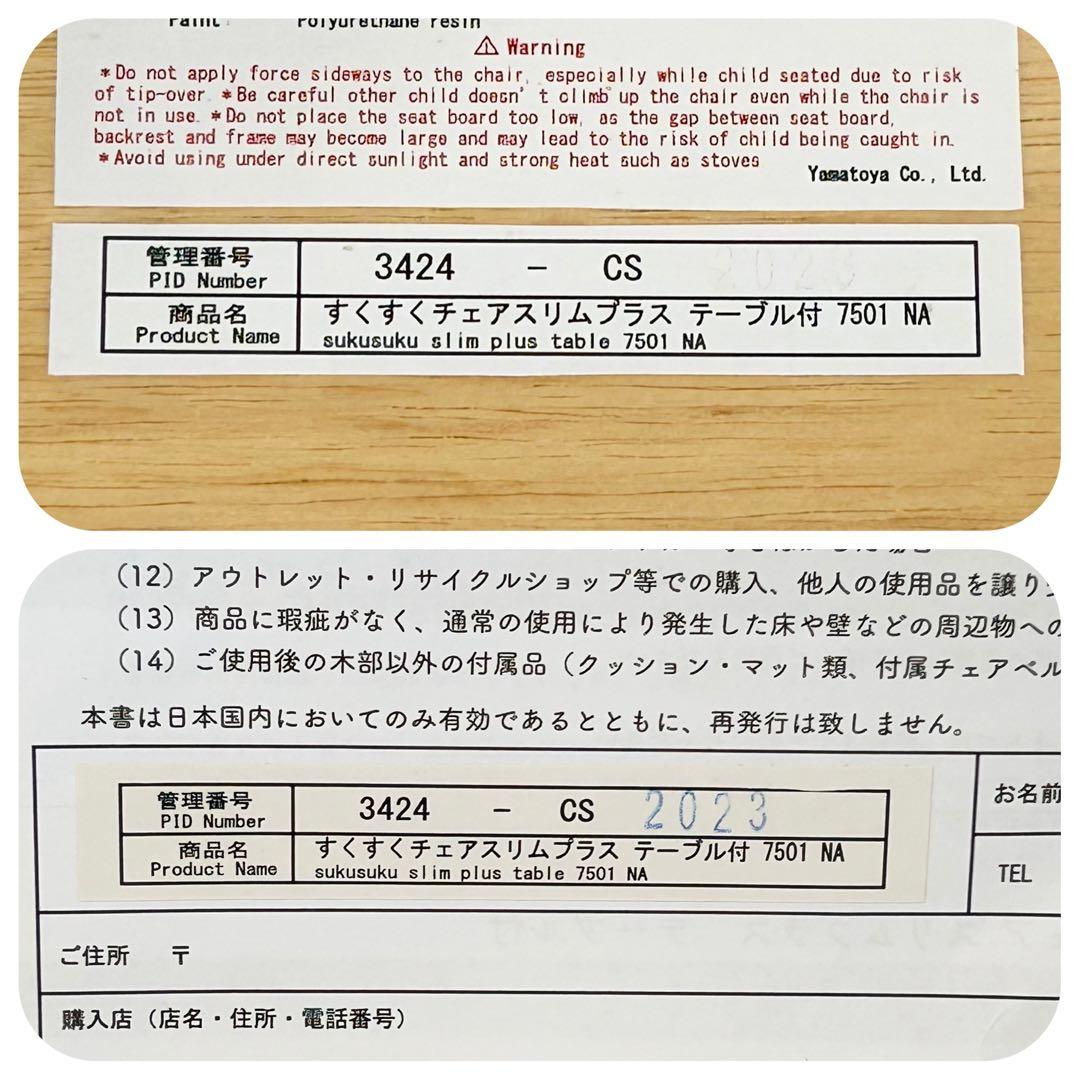 Paint : Polyurethane resin
⚠ Warning
*Do not apply force sideways to the chair, especially while child seated due to risk
of tip-over. *Be careful other child doesn't climb up the chair even while the chair is
not in use. *Do not place the seat board too low, as the gap between seat board,
backrest and frame may become large and may lead to the risk of child being caught in.
*Avoid using under direct sunlight and strong heat such as stoves
Yamatoya Co., Ltd.
管理番号
PID Number
3424 - CS 2023
商品名
Product Name
すくすくチェアスリムプラス テーブル付 7501 NA
sukusuku slim plus table 7501 NA
(12) アウトレット・リサイクルショップ等での購入、他人の使用品を譲り
(13) 商品に瑕疵がなく、通常の使用により発生した床や壁などの周辺物への
(14) ご使用後の木部以外の付属品（クッション・マット類、付属チェアベル
本書は日本国内においてのみ有効であるとともに、再発行は致しません。
管理番号
PID Number
3424 - CS 2023
商品名
Product Name
すくすくチェアスリムプラス テーブル付 7501 NA
sukusuku slim plus table 7501 NA
お名前
TEL
ご住所 〒
購入店（店名・住所・電話番号）